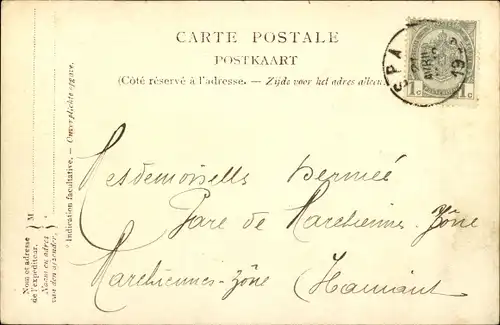 CARTE POSTALE
POSTKAART
(Côté réservé à l'adresse. — Zijde voor het adres alleen.
SPA
AVRIL
1c 1c
Mesdemoiselles Hermée
Gare de Marchienne-Zône
Marchiennes-Zône Hainaut
*Indication facultative. — Onverplichte opgave.
M
Nom et adresse
de l'expéditeur.
Naam en adres
van den afzender.